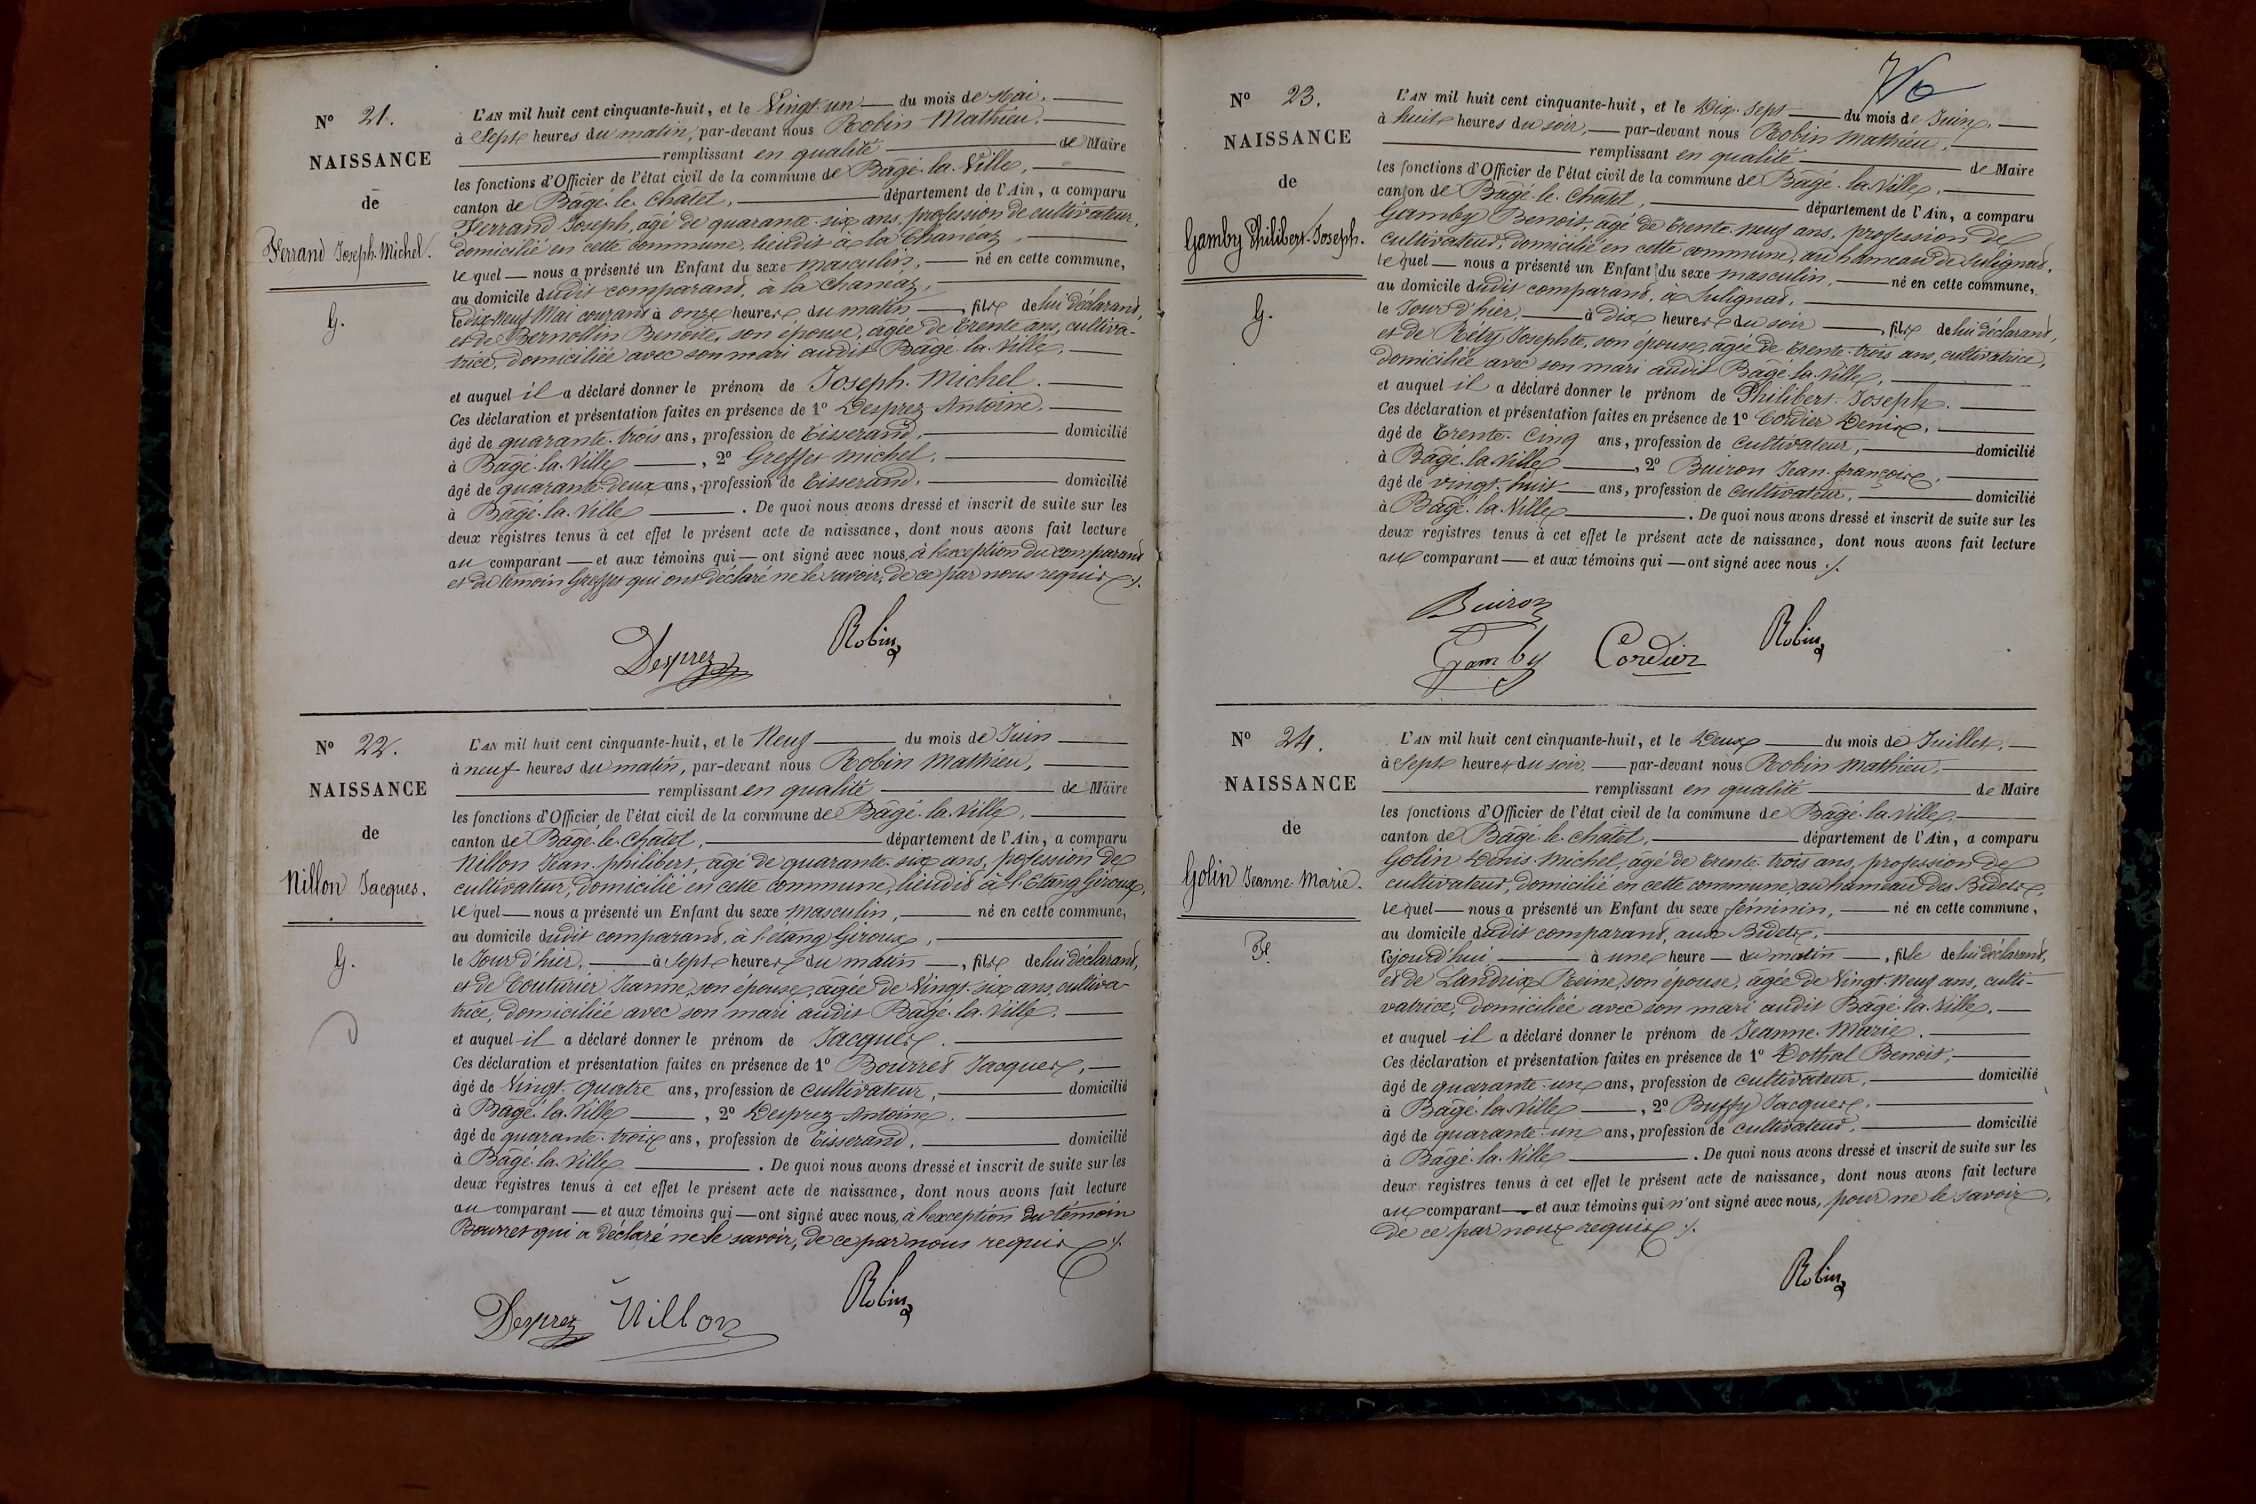 N° 21.
NAISSANCE
de
Ferrand Joseph-Michel.
G.
L'AN mil huit cent cinquante-huit, et le Vingt-un du mois de Mai.
à Sept heures du matin, par-devant nous Robin Mathieu.
remplissant en qualité de Maire
les fonctions d'Officier de l'état civil de la commune de Bâgé-la-Ville,
canton de Bâgé-le-Châtel, département de l'Ain, a comparu
Ferrand Joseph, âgé de quarante-six ans, profession de cultivateur,
domicilié en cette commune, lieudit à la Chaneaz,
lequel nous a présenté un Enfant du sexe masculin, né en cette commune,
au domicile dudit comparant, à la Chaneaz,
le dix-neuf Mai courant à onze heures du matin, fils de lui déclarant,
et de Bernollin Benoite, son épouse, âgée de trente ans, cultiva-
trice, domiciliée avec son mari audit Bâgé-la-Ville,
et auquel il a déclaré donner le prénom de Joseph-Michel.
Ces déclaration et présentation faites en présence de 1° Desprez Antoine,
âgé de quarante-trois ans, profession de tisserand, domicilié
à Bâgé-la-Ville, 2° Greffet Michel,
âgé de quarante-deux ans, profession de tisserand, domicilié
à Bâgé-la-Ville. De quoi nous avons dressé et inscrit de suite sur les
deux registres tenus à cet effet le présent acte de naissance, dont nous avons fait lecture
au comparant et aux témoins qui ont signé avec nous, à l'exception du comparant
et du témoin Greffet qui ont déclaré ne le savoir, de ce par nous requis ./.
Desprez Robin
N° 22.
NAISSANCE
de
Nillon Jacques.
G.
L'AN mil huit cent cinquante-huit, et le Neuf du mois de Juin
à neuf heures du matin, par-devant nous Robin Mathieu,
remplissant en qualité de Maire
les fonctions d'Officier de l'état civil de la commune de Bâgé-la-Ville,
canton de Bâgé-le-Châtel, département de l'Ain, a comparu
Nillon Jean-philibert, âgé de quarante-six ans, profession de
cultivateur, domicilié en cette commune, lieudit à l'Etang Giroux,
lequel nous a présenté un Enfant du sexe masculin, né en cette commune,
au domicile dudit comparant, à l'étang Giroux,
le Jour d'hier, à Sept heures du matin, fils de lui déclarant,
et de Couturier Jeanne, son épouse, âgée de Vingt-six ans, cultiva-
trice, domiciliée avec son mari audit Bâgé-la-Ville.
et auquel il a déclaré donner le prénom de Jacques.
Ces déclaration et présentation faites en présence de 1° Bourret Jacques,
âgé de Vingt-quatre ans, profession de cultivateur, domicilié
à Bâgé-la-Ville, 2° Desprez Antoine,
âgé de quarante-trois ans, profession de tisserand, domicilié
à Bâgé-la-Ville. De quoi nous avons dressé et inscrit de suite sur les
deux registres tenus à cet effet le présent acte de naissance, dont nous avons fait lecture
au comparant et aux témoins qui ont signé avec nous, à l'exception du témoin
Bourret qui a déclaré ne le savoir, de ce par nous requis ./.
Desprez Nillon Robin
N° 23.
NAISSANCE
de
Gamby Philibert-Joseph.
G.
L'AN mil huit cent cinquante-huit, et le Dix-Sept du mois de Juin,
à huit heures du soir, par-devant nous Robin Mathieu,
remplissant en qualité de Maire
les fonctions d'Officier de l'état civil de la commune de Bâgé-la-Ville,
canton de Bâgé-le-Châtel, département de l'Ain, a comparu
Gamby Benoit, âgé de trente-neuf ans, profession de
cultivateur, domicilié en cette commune, au hameau de Sulignat,
lequel nous a présenté un Enfant du sexe masculin, né en cette commune,
au domicile dudit comparant, à Sulignat,
le Jour d'hier, à dix heures du soir, fils de lui déclarant,
et de Réty Josephte, son épouse, âgée de trente-trois ans, cultivatrice,
domiciliée avec son mari audit Bâgé-la-Ville,
et auquel il a déclaré donner le prénom de Philibert-Joseph.
Ces déclaration et présentation faites en présence de 1° Cordier Denis,
âgé de trente-cinq ans, profession de cultivateur, domicilié
à Bâgé-la-Ville, 2° Buiron Jean-françois,
âgé de vingt-huit ans, profession de cultivateur, domicilié
à Bâgé-la-Ville. De quoi nous avons dressé et inscrit de suite sur les
deux registres tenus à cet effet le présent acte de naissance, dont nous avons fait lecture
au comparant et aux témoins qui ont signé avec nous ./.
Buiron
Gamby Cordier Robin
N° 24.
NAISSANCE
de
Golin Jeanne-Marie.
F.
L'AN mil huit cent cinquante-huit, et le Deux du mois de Juillet,
à Sept heures du soir, par-devant nous Robin Mathieu,
remplissant en qualité de Maire
les fonctions d'Officier de l'état civil de la commune de Bâgé-la-Ville,
canton de Bâgé-le-Châtel, département de l'Ain, a comparu
Golin Denis-Michel, âgé de trente-trois ans, profession de
cultivateur, domicilié en cette commune, au hameau des Bidets,
lequel nous a présenté un Enfant du sexe féminin, né en cette commune,
au domicile dudit comparant, aux Bidets,
cejourd'hui à une heure du matin, fille de lui déclarant,
et de Landrix Reine, son épouse, âgée de Vingt-neuf ans, culti-
vatrice, domiciliée avec son mari audit Bâgé-la-Ville,
et auquel il a déclaré donner le prénom de Jeanne-Marie.
Ces déclaration et présentation faites en présence de 1° Dothal Benoit,
âgé de quarante-un ans, profession de cultivateur, domicilié
à Bâgé-la-Ville, 2° Buffy Jacques,
âgé de quarante-un ans, profession de cultivateur, domicilié
à Bâgé-la-Ville. De quoi nous avons dressé et inscrit de suite sur les
deux registres tenus à cet effet le présent acte de naissance, dont nous avons fait lecture
au comparant et aux témoins qui n'ont signé avec nous, pour ne le savoir,
de ce par nous requis ./.
Robin